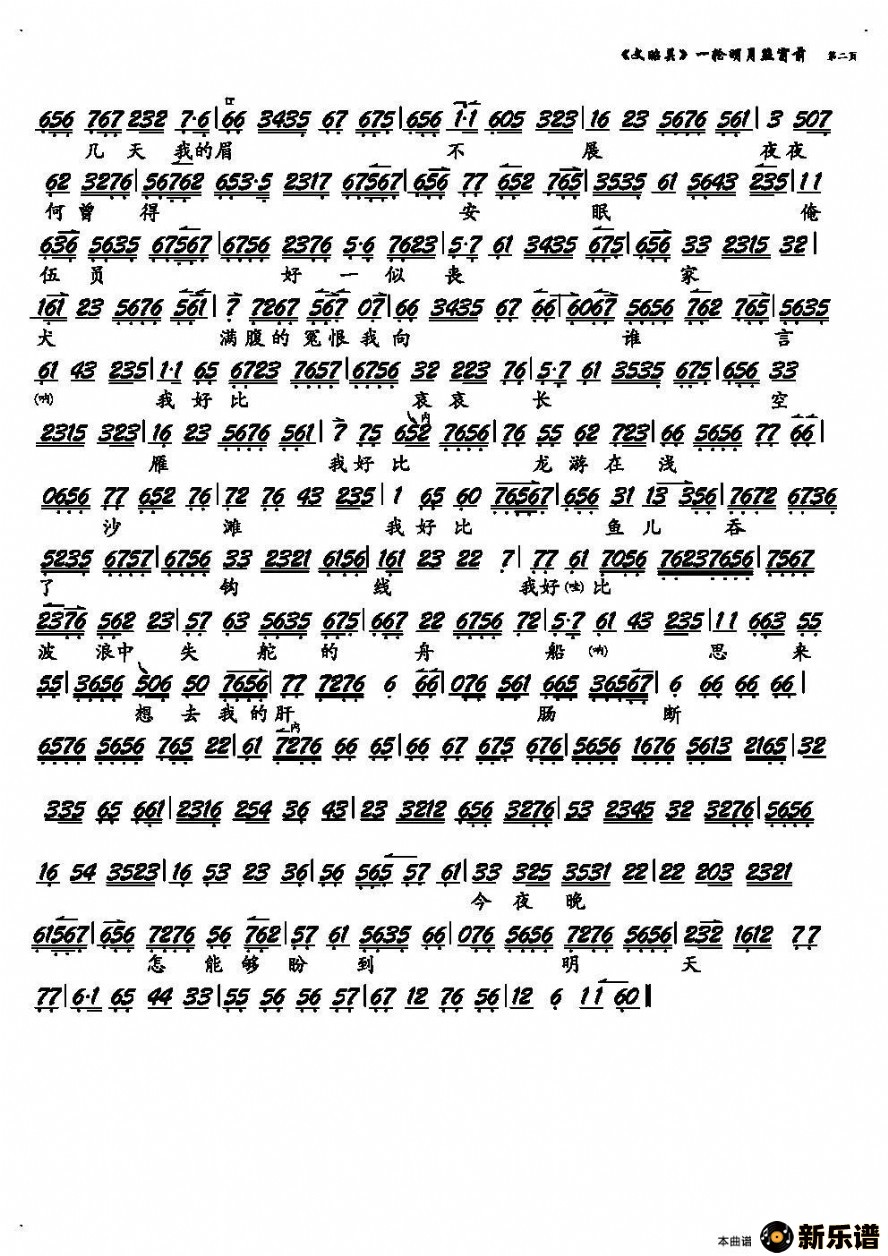 《文昭关》一轮明月照窗前 第二页
656 767 232 7·6|66 3435 67 675|656 1·1 605 323|16 23 5676 561|3 507
几天我的眉 不 展 夜夜
62 3276|56762 653·5 2317 67567|656 77 652 765|3535 61 5643 235|11
何曾得 安 眠 俺
636 5635 67567|6756 2376 5·6 7623|5·7 61 3435 675|656 33 2315 32|
伍员 好一似丧 家
161 23 5676 561|7 7267 567 07|66 3435 67 66|6067 5656 762 765|5635
犬 满腹的冤恨我向 谁 言
61 43 235|1·1 65 6723 7657|6756 32 223 76|5·7 61 3535 675|656 33
(呐) 我好比 哀哀长 空
内
2315 323|16 23 5676 561|7 75 652 7656|76 55 62 723|66 5656 77 66|
雁 我好比 龙游在浅
0656 77 652 76|72 76 43 235|1 65 60 76567|656 31 13 356|7672 6736
沙 滩 我好比 鱼儿吞
5235 6757|6756 33 2321 6156|161 23 22 7|77 61 7056 76237656|7567
了 钩 线 我好(哇)比
2376 562 23|57 63 5635 675|667 22 6756 72|5·7 61 43 235|11 663 55
波浪中失舵的舟 船(呐) 思来
55|3656 506 50 7656|77 7276 6 66|076 561 665 36567|6 66 66 66|
想去我的肝 肠 断
内
6576 5656 765 22|61 7276 66 65|66 67 675 676|5656 1676 5613 2165|32
335 65 661|2316 254 36 43|23 3212 656 3276|53 2345 32 3276|5656
16 54 3523|16 53 23 36|56 565 57 61|33 325 3531 22|22 203 2321
今夜晚
61567|656 7276 56 762|57 61 5635 66|076 5656 7276 5656|232 1612 77
怎能够盼到 明 天
77|6·1 65 44 33|55 56 56 57|67 12 76 56|12 6 11 60‖
本曲谱 新乐谱